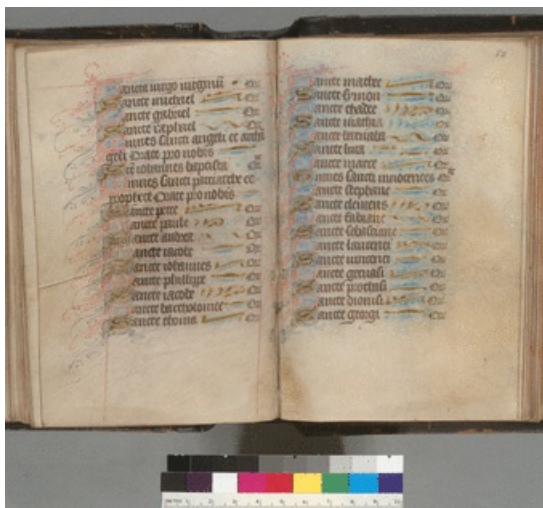 Sancta virgo virginum Or
Sancte michael Or
Sancte gabriel Or
Sancte raphael Or
Omnes sancti angeli et archa
geli Orate pro nobis
Sancte iohannes baptista Or
Omnes sancti patriarche et
prophete Orate pro nobis
Sancte petre Or
Sancte paule Or
Sancte andrea Or
Sancte iacobe Or
Sancte iohannes Or
Sancte philippe Or
Sancte iacobe Or
Sancte bartholomee Or
Sancte thoma Or
Sancte mathee Or
Sancte simon Or
Sancte thadee Or
Sancte mathia Or
Sancte barnaba Or
Sancte luca Or
Sancte marce Or
Omnes sancti innocentes Or
Sancte stephane Or
Sancte clemens Or
Sancte fabiane Or
Sancte sebastiane Or
Sancte laurenti Or
Sancte vincenti Or
Sancte geruasi Or
Sancte prothasi Or
Sancte dionisi Or
Sancte georgi Or